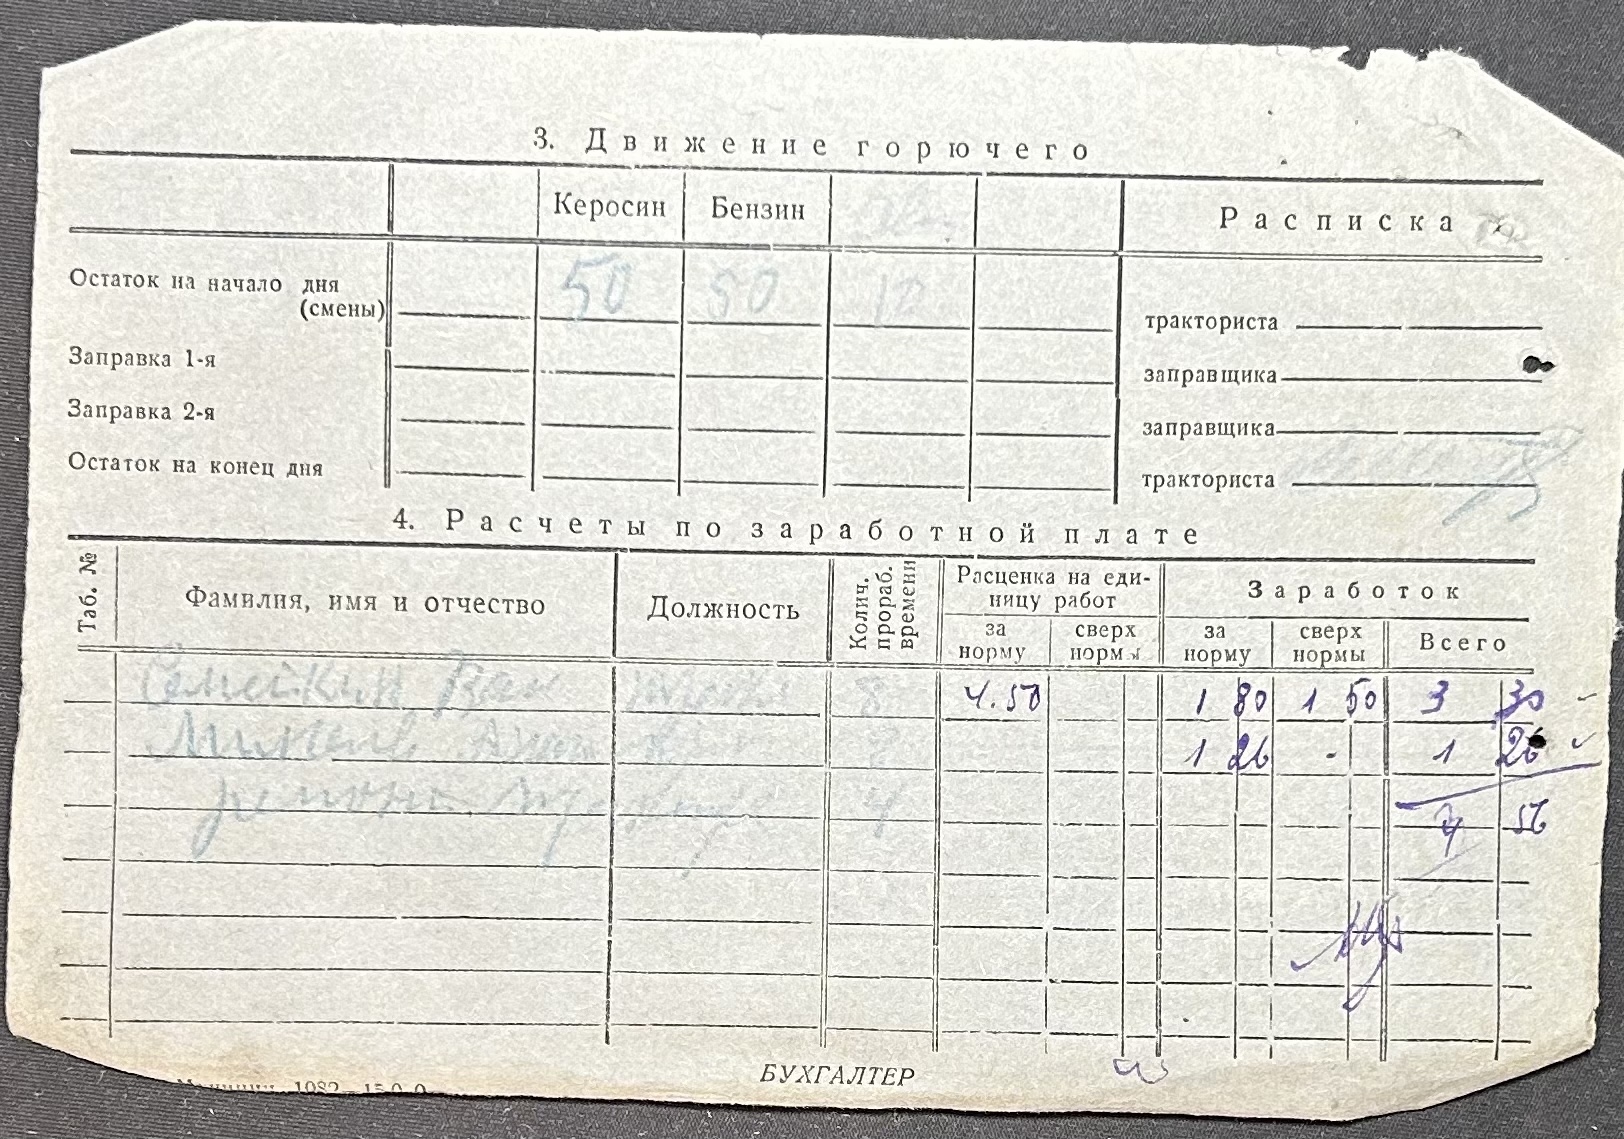 3. Движение горючего
Керосин Бензин Расписка
Остаток на начало дня (смены) 50 12
тракториста
Заправка 1-я
заправщика
Заправка 2-я
заправщика
Остаток на конец дня
тракториста
4. Расчеты по заработной плате
Таб. № Фамилия, имя и отчество Должность Колич. прораб. времени Расценка на еди-
ницу работ Заработок
за норму сверх нормы за норму сверх нормы Всего
Семейкин 8 4.50 1 80 1 50 3 30
1 26 - 1 26
ремонт 4 4 56
БУХГАЛТЕР